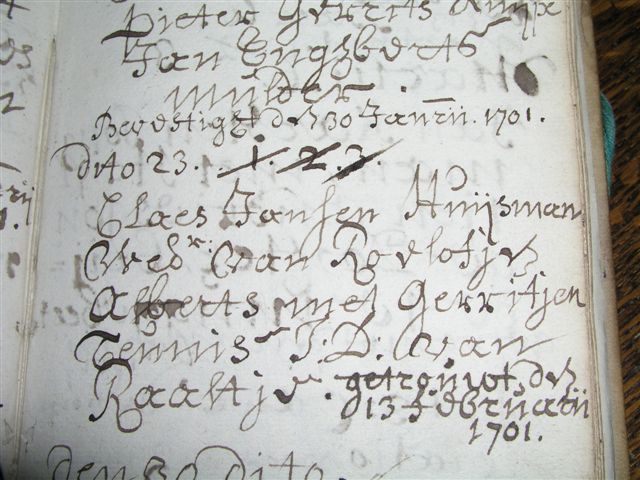 Pieter Gerrits
Jan Enghberts
mulder.
Bevestight den 30 Januarii. 1701.
dito 23. 1. 2. 3.
Claes Jansen Huijsman
Wedr: van Roelofjen
Alberts met Gerritjen
Teunis J: D: van
Raaltje. getrouwt, den
13 Februarii
1701.
den 30 dito.